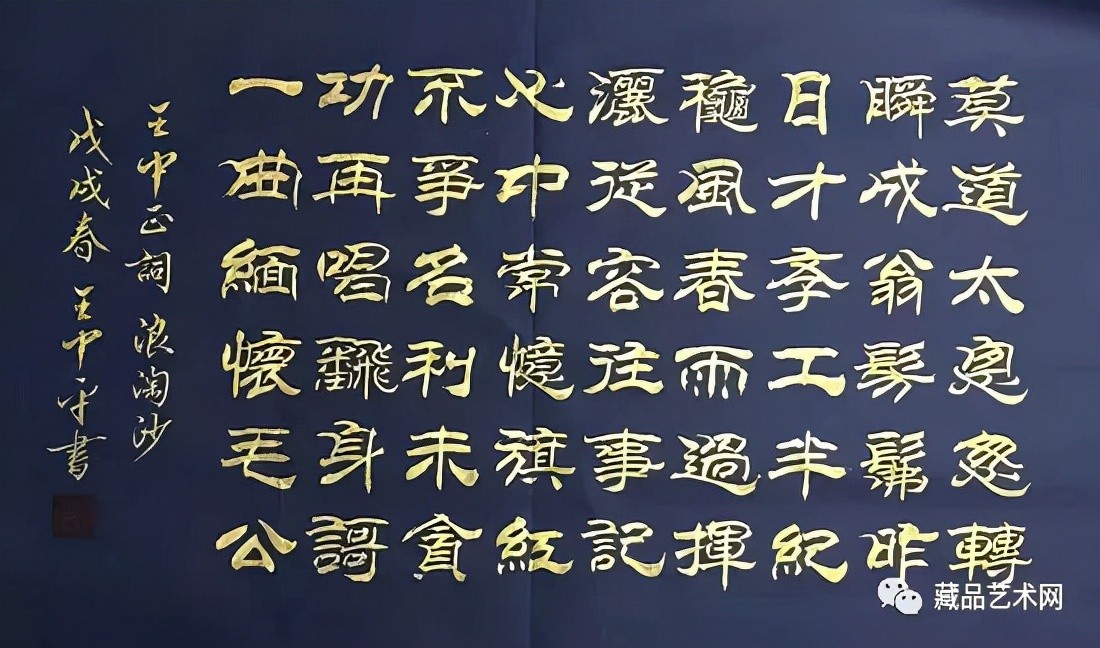 莫道太怱怱轉
瞬成翁髣髴昨
日才斈工半紀
龝風春雨過揮
灑從容往事記
心中常憶旗紅
不爭名利未貪
功再唱飜身謌
一曲緬懷毛公
王中正詞 浪淘沙
戊戌春 王中平書
藏品艺术网